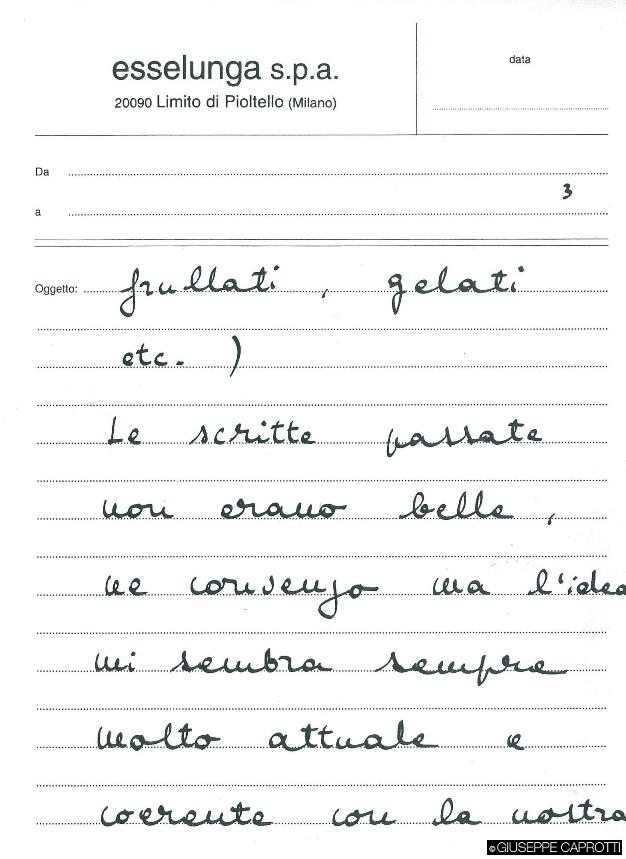 esselunga s.p.a.
20090 Limito di Pioltello (Milano)
data
Da
3
a
Oggetto: frullati, gelati
etc. )
Le scritte passate
non erano belle,
ne convengo ma l'idea
mi sembra sempre
molto attuale e
coerente con la nostra
©GIUSEPPE CAPROTTI